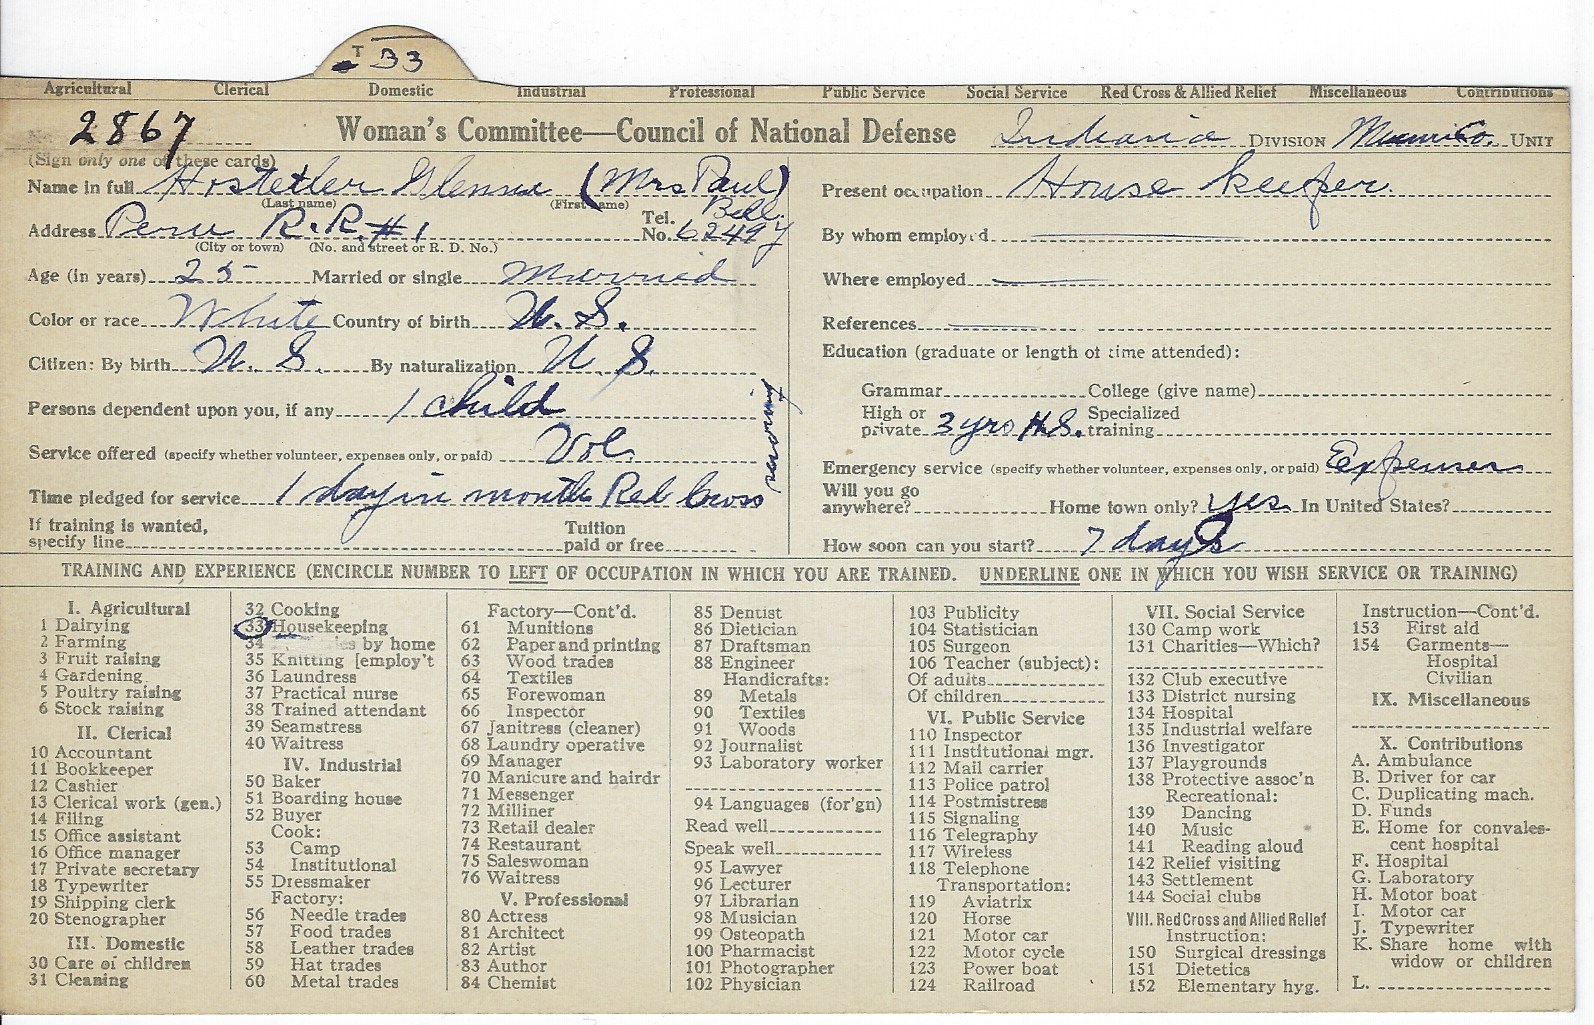 T 33
Agricultural Clerical Domestic Industrial Professional Public Service Social Service Red Cross & Allied Relief Miscellaneous Contributions
No. 2867 Woman's Committee—Council of National Defense Indiana DIVISION Miami Co. UNIT
(Sign only one of these cards)
Name in full Hostetler Glenna (Mrs Paul)
(Last name) (First name)
Address Peru R.R. #1 Tel. No. Bell 62497
(City or town) (No. and street or R. D. No.)
Age (in years) 25 Married or single Married
Color or race White Country of birth U. S.
Citizen: By birth U. S. By naturalization U. S.
Persons dependent upon you, if any 1 child
Service offered (specify whether volunteer, expenses only, or paid) Vol.
Time pledged for service 1 day in month Red Cross sewing
If training is wanted, specify line Tuition paid or free
Present occupation House keeper.
By whom employed
Where employed
References
Education (graduate or length of time attended):
Grammar College (give name)
High or private 3 yrs H.S. Specialized training
Emergency service (specify whether volunteer, expenses only, or paid) Expenses
Will you go anywhere? Home town only? Yes In United States?
How soon can you start? 7 days
TRAINING AND EXPERIENCE (ENCIRCLE NUMBER TO LEFT OF OCCUPATION IN WHICH YOU ARE TRAINED. UNDERLINE ONE IN WHICH YOU WISH SERVICE OR TRAINING)
I. Agricultural
1 Dairying
2 Farming
3 Fruit raising
4 Gardening
5 Poultry raising
6 Stock raising
II. Clerical
10 Accountant
11 Bookkeeper
12 Cashier
13 Clerical work (gen.)
14 Filing
15 Office assistant
16 Office manager
17 Private secretary
18 Typewriter
19 Shipping clerk
20 Stenographer
III. Domestic
30 Care of children
31 Cleaning
32 Cooking
33 Housekeeping
34 by home
35 Knitting [employ't
36 Laundress
37 Practical nurse
38 Trained attendant
39 Seamstress
40 Waitress
IV. Industrial
50 Baker
51 Boarding house
52 Buyer
Cook:
53 Camp
54 Institutional
55 Dressmaker
Factory:
56 Needle trades
57 Food trades
58 Leather trades
59 Hat trades
60 Metal trades
Factory—Cont'd.
61 Munitions
62 Paper and printing
63 Wood trades
64 Textiles
65 Forewoman
66 Inspector
67 Janitress (cleaner)
68 Laundry operative
69 Manager
70 Manicure and hairdr
71 Messenger
72 Milliner
73 Retail dealer
74 Restaurant
75 Saleswoman
76 Waitress
V. Professional
80 Actress
81 Architect
82 Artist
83 Author
84 Chemist
85 Dentist
86 Dietician
87 Draftsman
88 Engineer
Handicrafts:
89 Metals
90 Textiles
91 Woods
92 Journalist
93 Laboratory worker
94 Languages (for'gn)
Read well
Speak well
95 Lawyer
96 Lecturer
97 Librarian
98 Musician
99 Osteopath
100 Pharmacist
101 Photographer
102 Physician
103 Publicity
104 Statistician
105 Surgeon
106 Teacher (subject):
Of adults
Of children
VI. Public Service
110 Inspector
111 Institutional mgr.
112 Mail carrier
113 Police patrol
114 Postmistress
115 Signaling
116 Telegraphy
117 Wireless
118 Telephone
Transportation:
119 Aviatrix
120 Horse
121 Motor car
122 Motor cycle
123 Power boat
124 Railroad
VII. Social Service
130 Camp work
131 Charities—Which?
132 Club executive
133 District nursing
134 Hospital
135 Industrial welfare
136 Investigator
137 Playgrounds
138 Protective assoc'n
Recreational:
139 Dancing
140 Music
141 Reading aloud
142 Relief visiting
143 Settlement
144 Social clubs
VIII. Red Cross and Allied Relief
Instruction:
150 Surgical dressings
151 Dietetics
152 Elementary hyg.
Instruction—Cont'd.
153 First aid
154 Garments—
Hospital
Civilian
IX. Miscellaneous
X. Contributions
A. Ambulance
B. Driver for car
C. Duplicating mach.
D. Funds
E. Home for convales-
cent hospital
F. Hospital
G. Laboratory
H. Motor boat
I. Motor car
J. Typewriter
K. Share home with
widow or children
L.